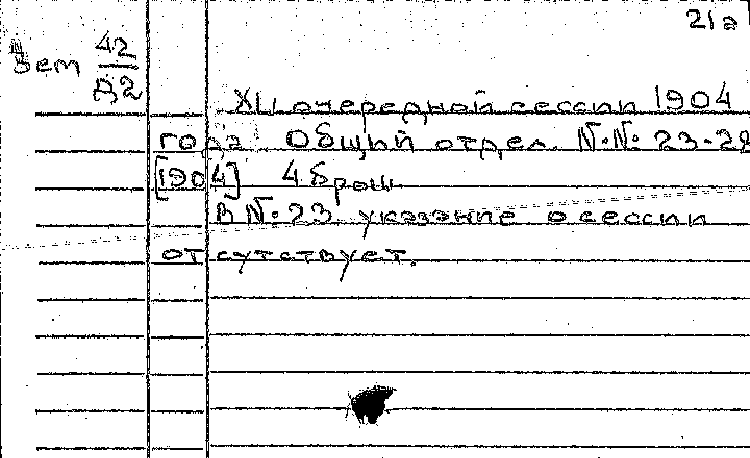 21а
Зем 42
Д2
XL очередной сессии 1904
года. Общий отдел. №№ 23-28
[1904] 4 брош.
В № 23. указание о сессии
отсутствует.